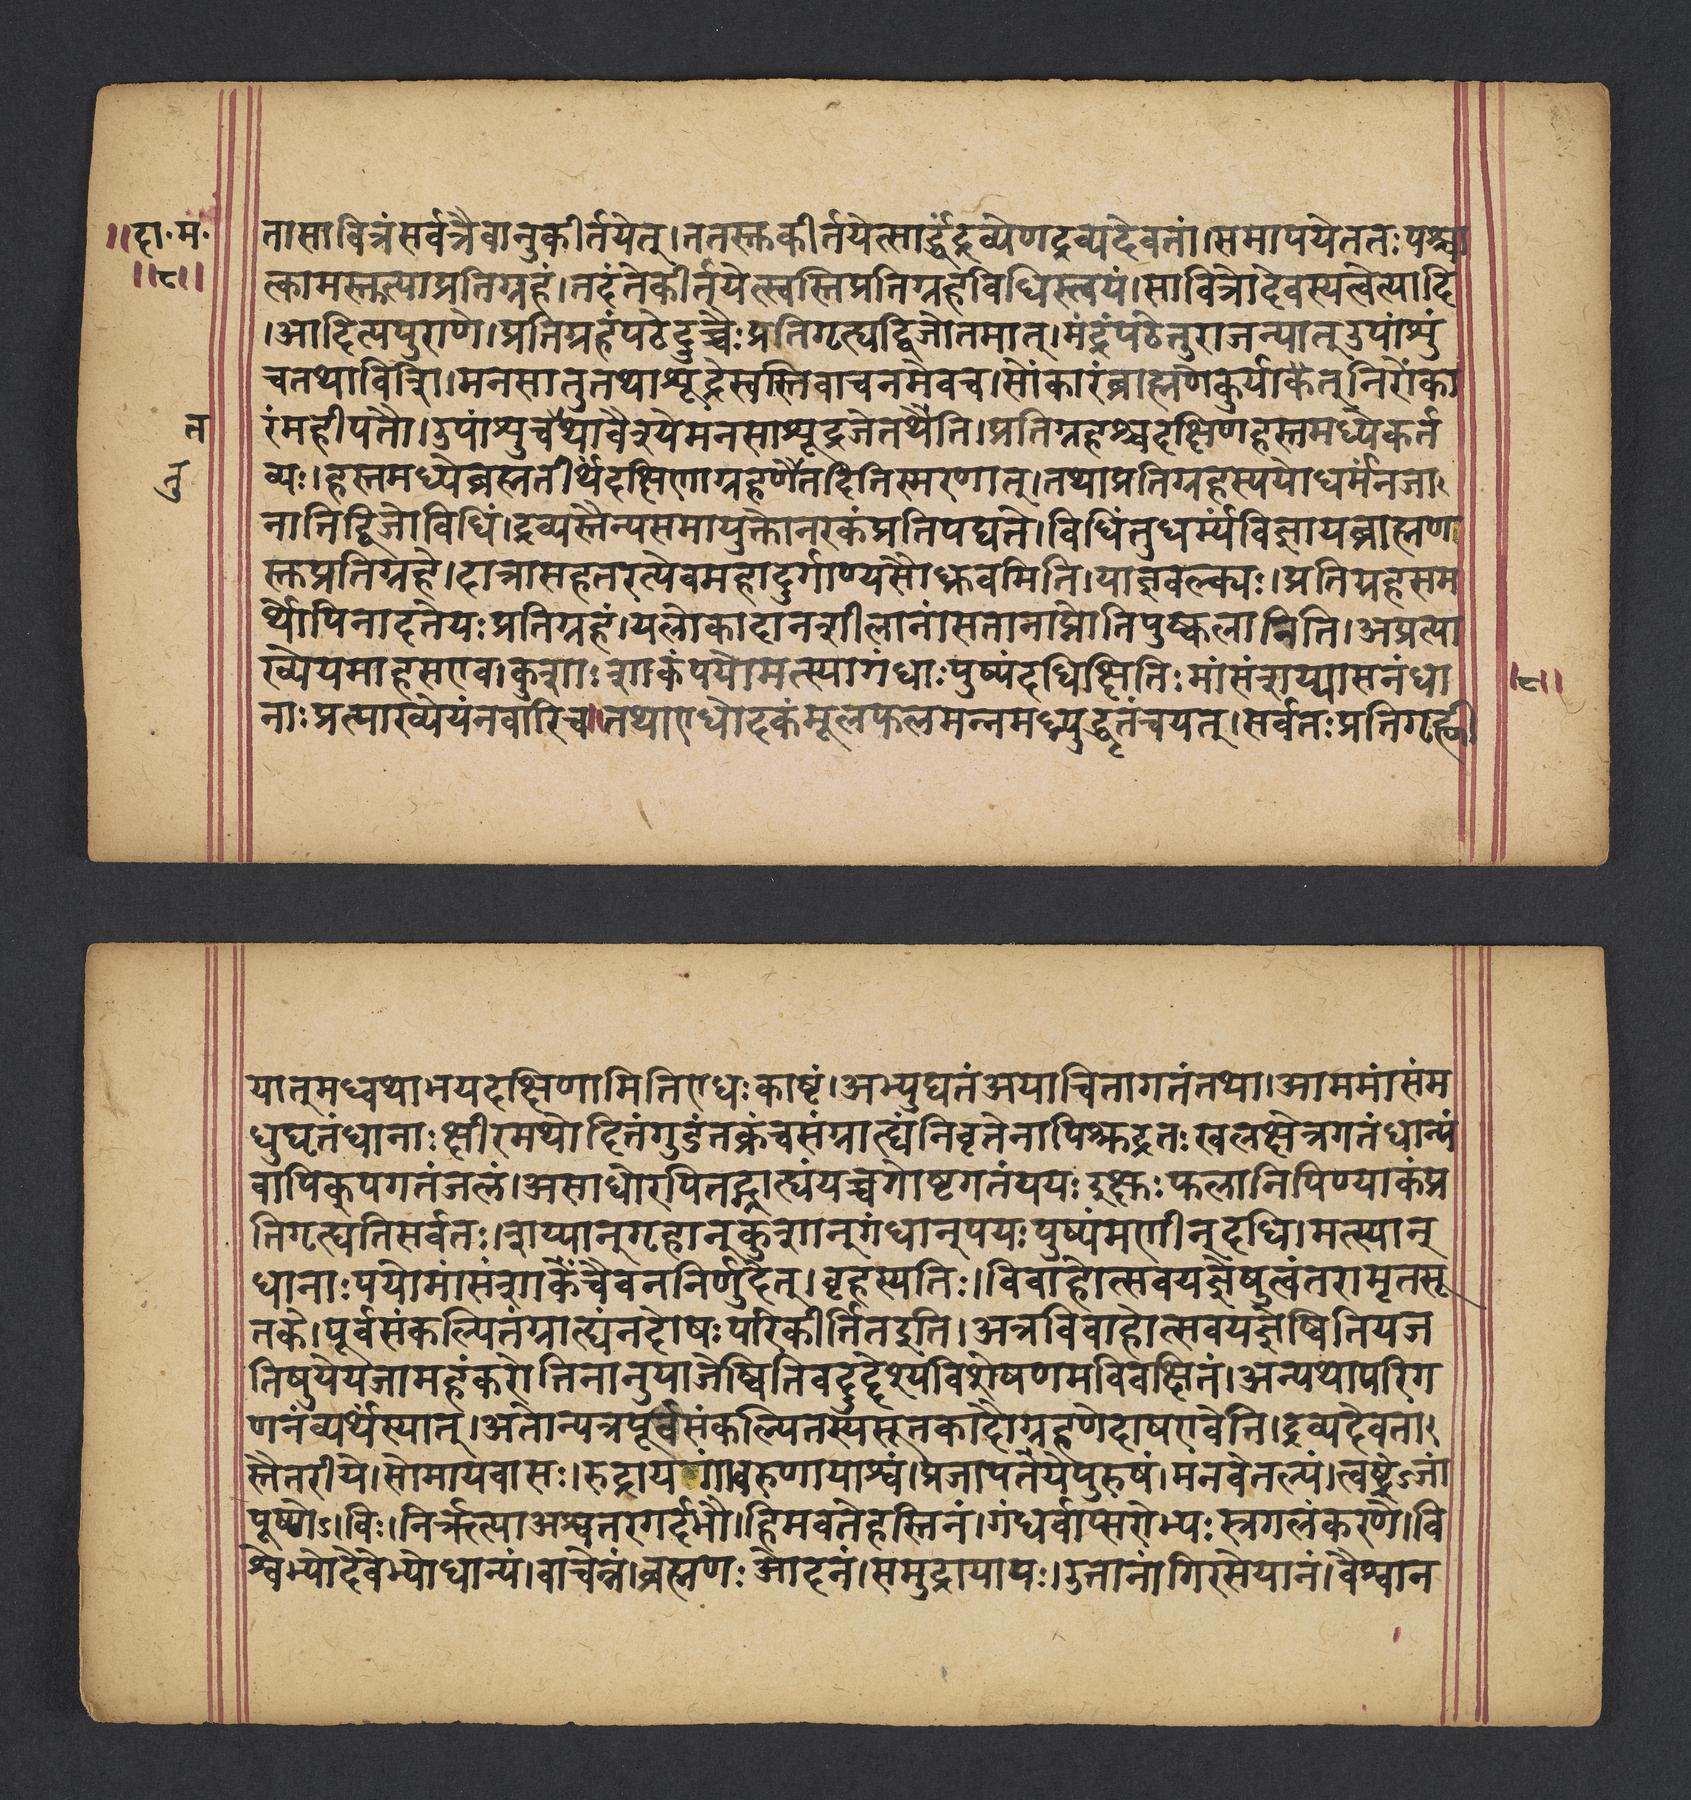 ॥दा॰म॰
॥८॥
तासावित्रंसर्वत्रैवानुकीर्तयेत्।ततस्तुकीर्तयेत्सार्द्धंद्रव्येणद्रव्यदेवतां।समापयेततःपश्चा
त्कामस्तुत्याप्रतिग्रहं।तदंतेकीर्तयेत्स्वस्तिप्रतिग्रहविधिस्त्वयं।सावित्रोदेवस्यत्वेत्यादि
।आदित्यपुराणे।प्रतिग्रहंपठेदुच्चैःप्रतिगृत्यद्विजोतमात्।मंद्रंपठेतुराजन्यात्उपांशुं
चतथाविशि।मनसातुतथाशूद्रेस्वस्तिवाचनमेवच।सोंकारंब्राह्मणेकुर्याकेत्निरोंका
त
रंमहीपतौ।उपांशुचतथावैश्येमनसाशूद्रजेतथेति।प्रतिग्रहश्चदक्षिणहस्तमध्येकर्त
तु
व्यः।हस्तमध्येब्रह्मतीर्थंदक्षिणाग्रहणेतदितिस्मरणात्।तथाप्रतिग्रहस्ययोधर्मंनजा
नातिद्विजोविधिं।द्रव्यस्तैन्यसमायुक्तोनरकंप्रतिपद्यते।विधिंतुधर्म्यंविज्ञायब्राह्मण
स्तुप्रतिग्रहे।दात्रासहतरत्येवमहादुर्गाण्यसौध्रुवमिति।याज्ञवल्क्यः।प्रतिग्रहसम
र्थोपिनादतेयःप्रतिग्रहं।यलोकादानशीलानांसतानाप्नोतिपुष्कलानिति।अप्रत्या
ख्येयमाहसएव।कुशाःशाकंपयोमत्स्यागंधाःपुष्पंदधिक्षितिःमांसंशय्यासनंधा
॥८॥
नाःप्रत्याख्येयंनवारिच।तथाएधोदकंमूलफलमन्नमभ्युद्धृतंचयत्।सर्वतःप्रतिगृह्णी
यात्मध्वथाभयदक्षिणामितिएधःकाष्टं।अभ्युद्यतंअयाचितागतंतथा।आममांसंम
धुघृतंधानाःक्षीरमथोदितंगुडंतक्रंचसंग्रात्यंनिवृतेनापिशूद्रतःखलक्षेत्रगतंधान्यं
वापिकुपगतंजलं।असाधोरपितद्ग्रात्यंयच्चगोष्टगतंपयःदुक्षःफलानिपिण्याकंप्र
तिगृत्यतिसर्वतः।शय्यान्गृहान्कुशान्गंधान्पयःपुष्पंमणीन्दधि।मत्स्यान्
धानाःपयोमांसंशाकंचैवननिर्णुदेत्।बृहस्पतिः।विवाहोत्सवयज्ञेषुत्वंतरामृतसू
तके।पूर्वसंकल्पितंग्रात्यंनदोषःपरिकीर्तितइति।अत्रविवाहोत्सवयज्ञेष्वितियज
तिषुयेयजामहंकरोतिनानुयाजेष्वितिवदुद्देश्यविशेषणमविवक्षितं।अन्यथापरिग
णनंव्यर्थंस्यात्।अतोन्यत्रपूर्वसंकल्पितस्यसूतकादौग्रहणेदोषएवेति।द्रव्यदेवता
स्तैतरीये।सोमायवासः।रुद्रायगांवरुणायाश्वं।प्रजापतेयेपुरुषं।मनवेतल्पं।त्वष्ट्रेऽजां
पूष्णोऽविः।निर्ऋत्याअश्वतरगर्दभौ।हिमवतेहस्तिनं।गंधर्वाप्सरोभ्यःस्त्रगलंकरणे।वि
श्वेभ्योदेवेभ्योधान्यं।वाचेन्नं।ब्रह्मणःओदनं।समुद्रायापः।उतानांगिरसेयानं।वैश्वान